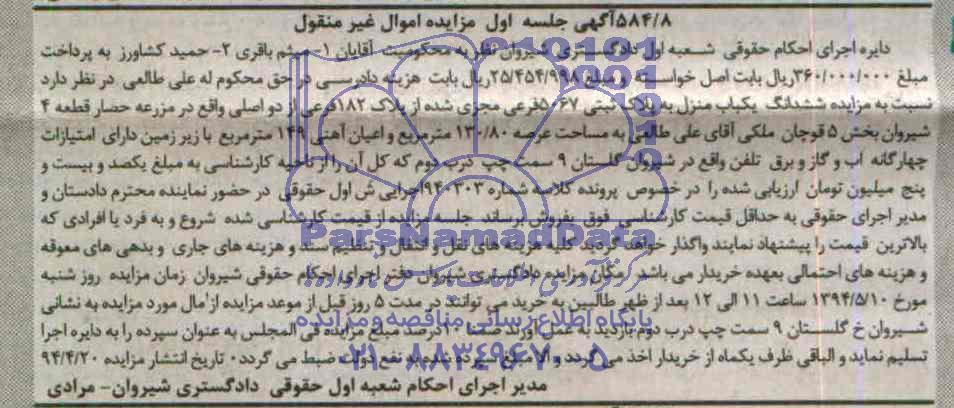 ۵۸۴/۸آگهی جلسه اول مزایده اموال غیر منقول
دایره اجرای احکام حقوقی شعبه اول دادگستری شیروان نظر به محکومیت آقایان ۱- میثم باقری ۲- حمید کشاورز به پرداخت
مبلغ ۳۶۰/۰۰۰/۰۰۰ریال بابت اصل خواسته و مبلغ ۲۵/۴۵۴/۹۹۸ریال بابت هزینه دادرسی در حق محکوم له علی طالعی در نظر دارد
نسبت به مزایده ششدانگ یکباب منزل به پلاک ثبتی ۵۰۶۷فرعی مجزی شده از پلاک ۱۸۲فرعی از دو اصلی واقع در مزرعه حصار قطعه ۴
شیروان بخش ۵ قوچان ملکی آقای علی طالعی به مساحت عرصه ۱۳۰/۸۰ مترمربع و اعیان آهنی ۱۴۹ مترمربع با زیر زمین دارای امتیازات
چهارگانه اب و گاز و برق تلفن واقع در شیروان گلستان ۹ سمت چپ درب دوم که کل آن را از ناحیه کارشناسی به مبلغ یکصد و بیست و
پنج میلیون تومان ارزیابی شده را در خصوص پرونده کلاسه شماره ۹۴۰۳۰۳اجرایی ش اول حقوقی در حضور نماینده محترم دادستان و
مدیر اجرای حقوقی به حداقل قیمت کارشناسی فوق بفروش برساند جلسه مزایده از قیمت کارشناسی شده شروع و به فرد یا افرادی که
بالاترین قیمت را پیشنهاد نمایند واگذار خواهد گردید کلیه هزینه های نقل و انتقال و تنظیم سند و هزینه های جاری و بدهی های معوقه
و هزینه های احتمالی بعهده خریدار می باشد مکان مزایده دادگستری شیروان دفتر اجرای احکام حقوقی شیروان زمان مزایده روز شنبه
مورخ ۱۳۹۴/۵/۱۰ ساعت ۱۱ الی ۱۲ بعد از ظهر طالبین به خرید می توانند در مدت ۵ روز قبل از موعد مزایده از مال مورد مزایده به نشانی
شیروان خ گلستان ۹ سمت چپ درب دوم بازدید به عمل آورند ضمنا ۱۰درصد مبلغ مزایده فی المجلس به عنوان سپرده را به دایره اجرا
تسلیم نماید و الباقی ظرف یکماه از خریدار اخذ می گردد و الا مبلغ سپرده شده به نفع دولت ضبط می گردد۰ تاریخ انتشار مزایده ۹۴/۴/۲۰
مدیر اجرای احکام شعبه اول حقوقی دادگستری شیروان- مرادی
ParsNamadData
پایگاه اطلاع رسانی مناقصه و مزایده
۰۲۱-۸۸۳۴۹۶۷۰-۵